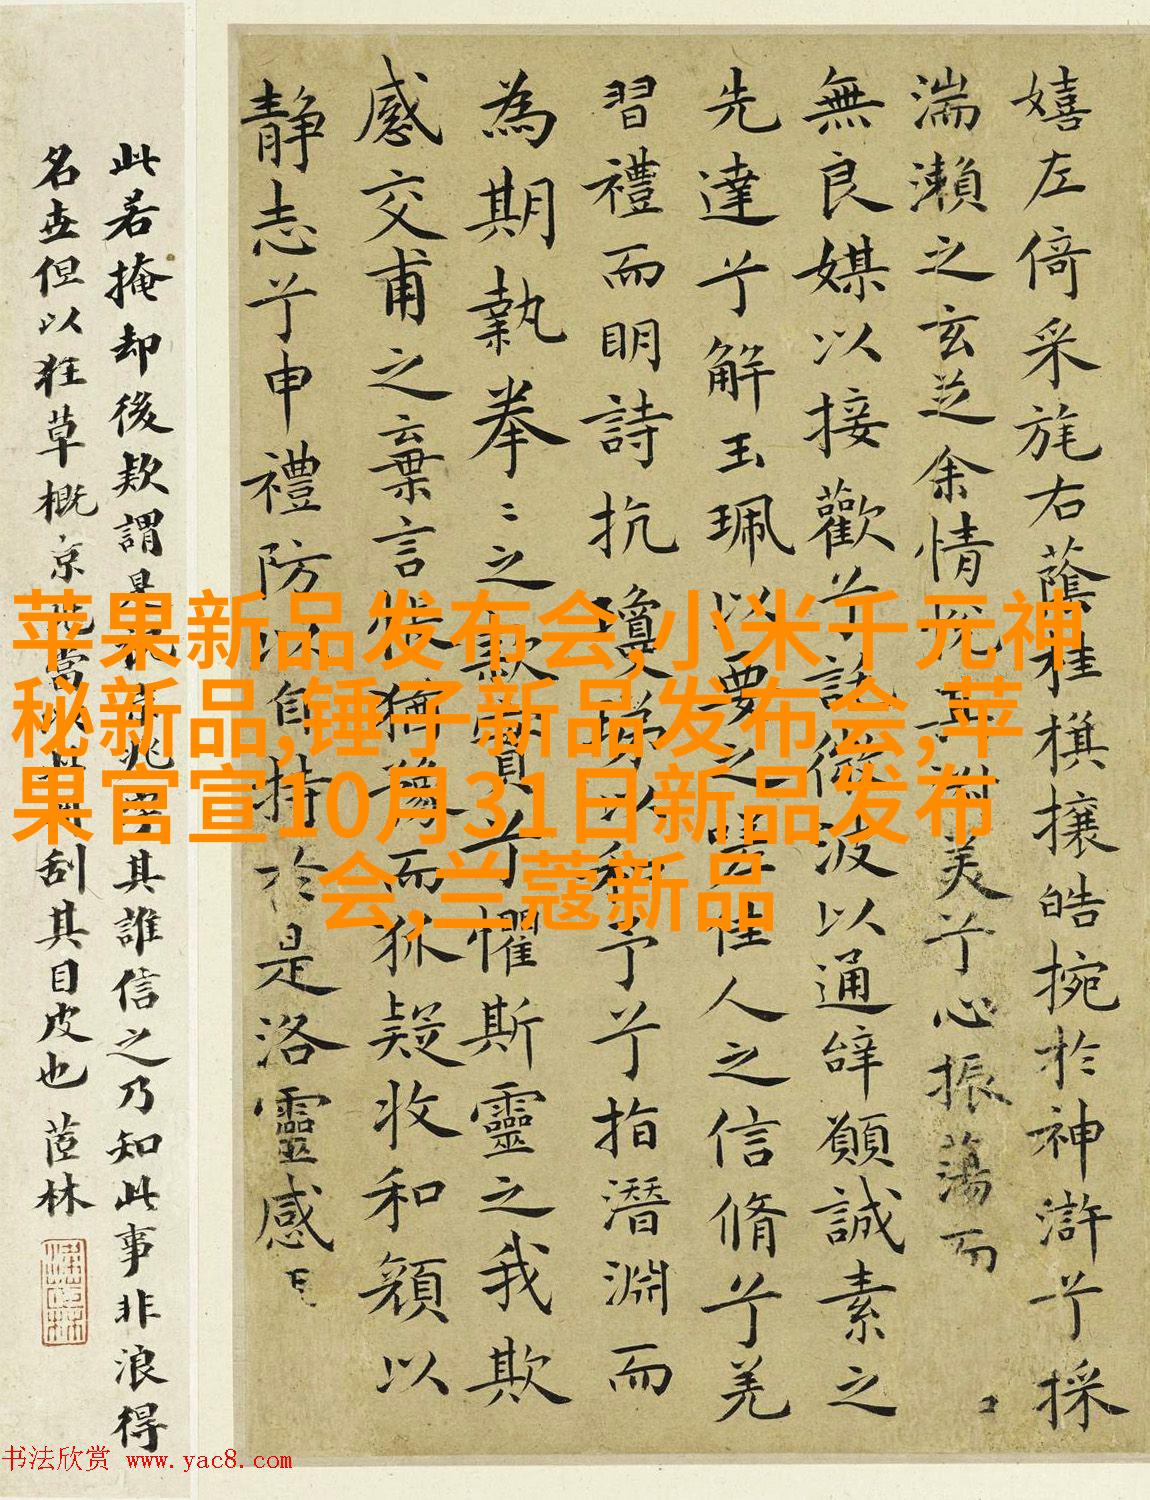 嬉左倚采旄右蔭桂橫攘皓捥於神滸兮採
湍瀨之玄芝余情悅其淑美兮心振蕩而
無良媒以接歡兮託微波以通辝願誠素之
先達兮解玉珮以要之嗟佳人之信脩兮羌
習禮而明詩抗瓊珶以和予兮指潛淵而
為期執拳〻之款實兮懼斯靈之我欺
感交甫之棄言悵猶豫而狐疑收和顏以
静志兮申禮防以自持於是洛靈感
此若掩却後欵謂是
其誰信之乃知此事非浪得
名世但以狂草概京兆當
刮其目皮也 茝林
苹果新品发布会,小米千元神
秘新品,锤子新品发布会,苹
果官宣10月31日新品发布
会,兰蔻新品
书法欣赏 www.yac8.com